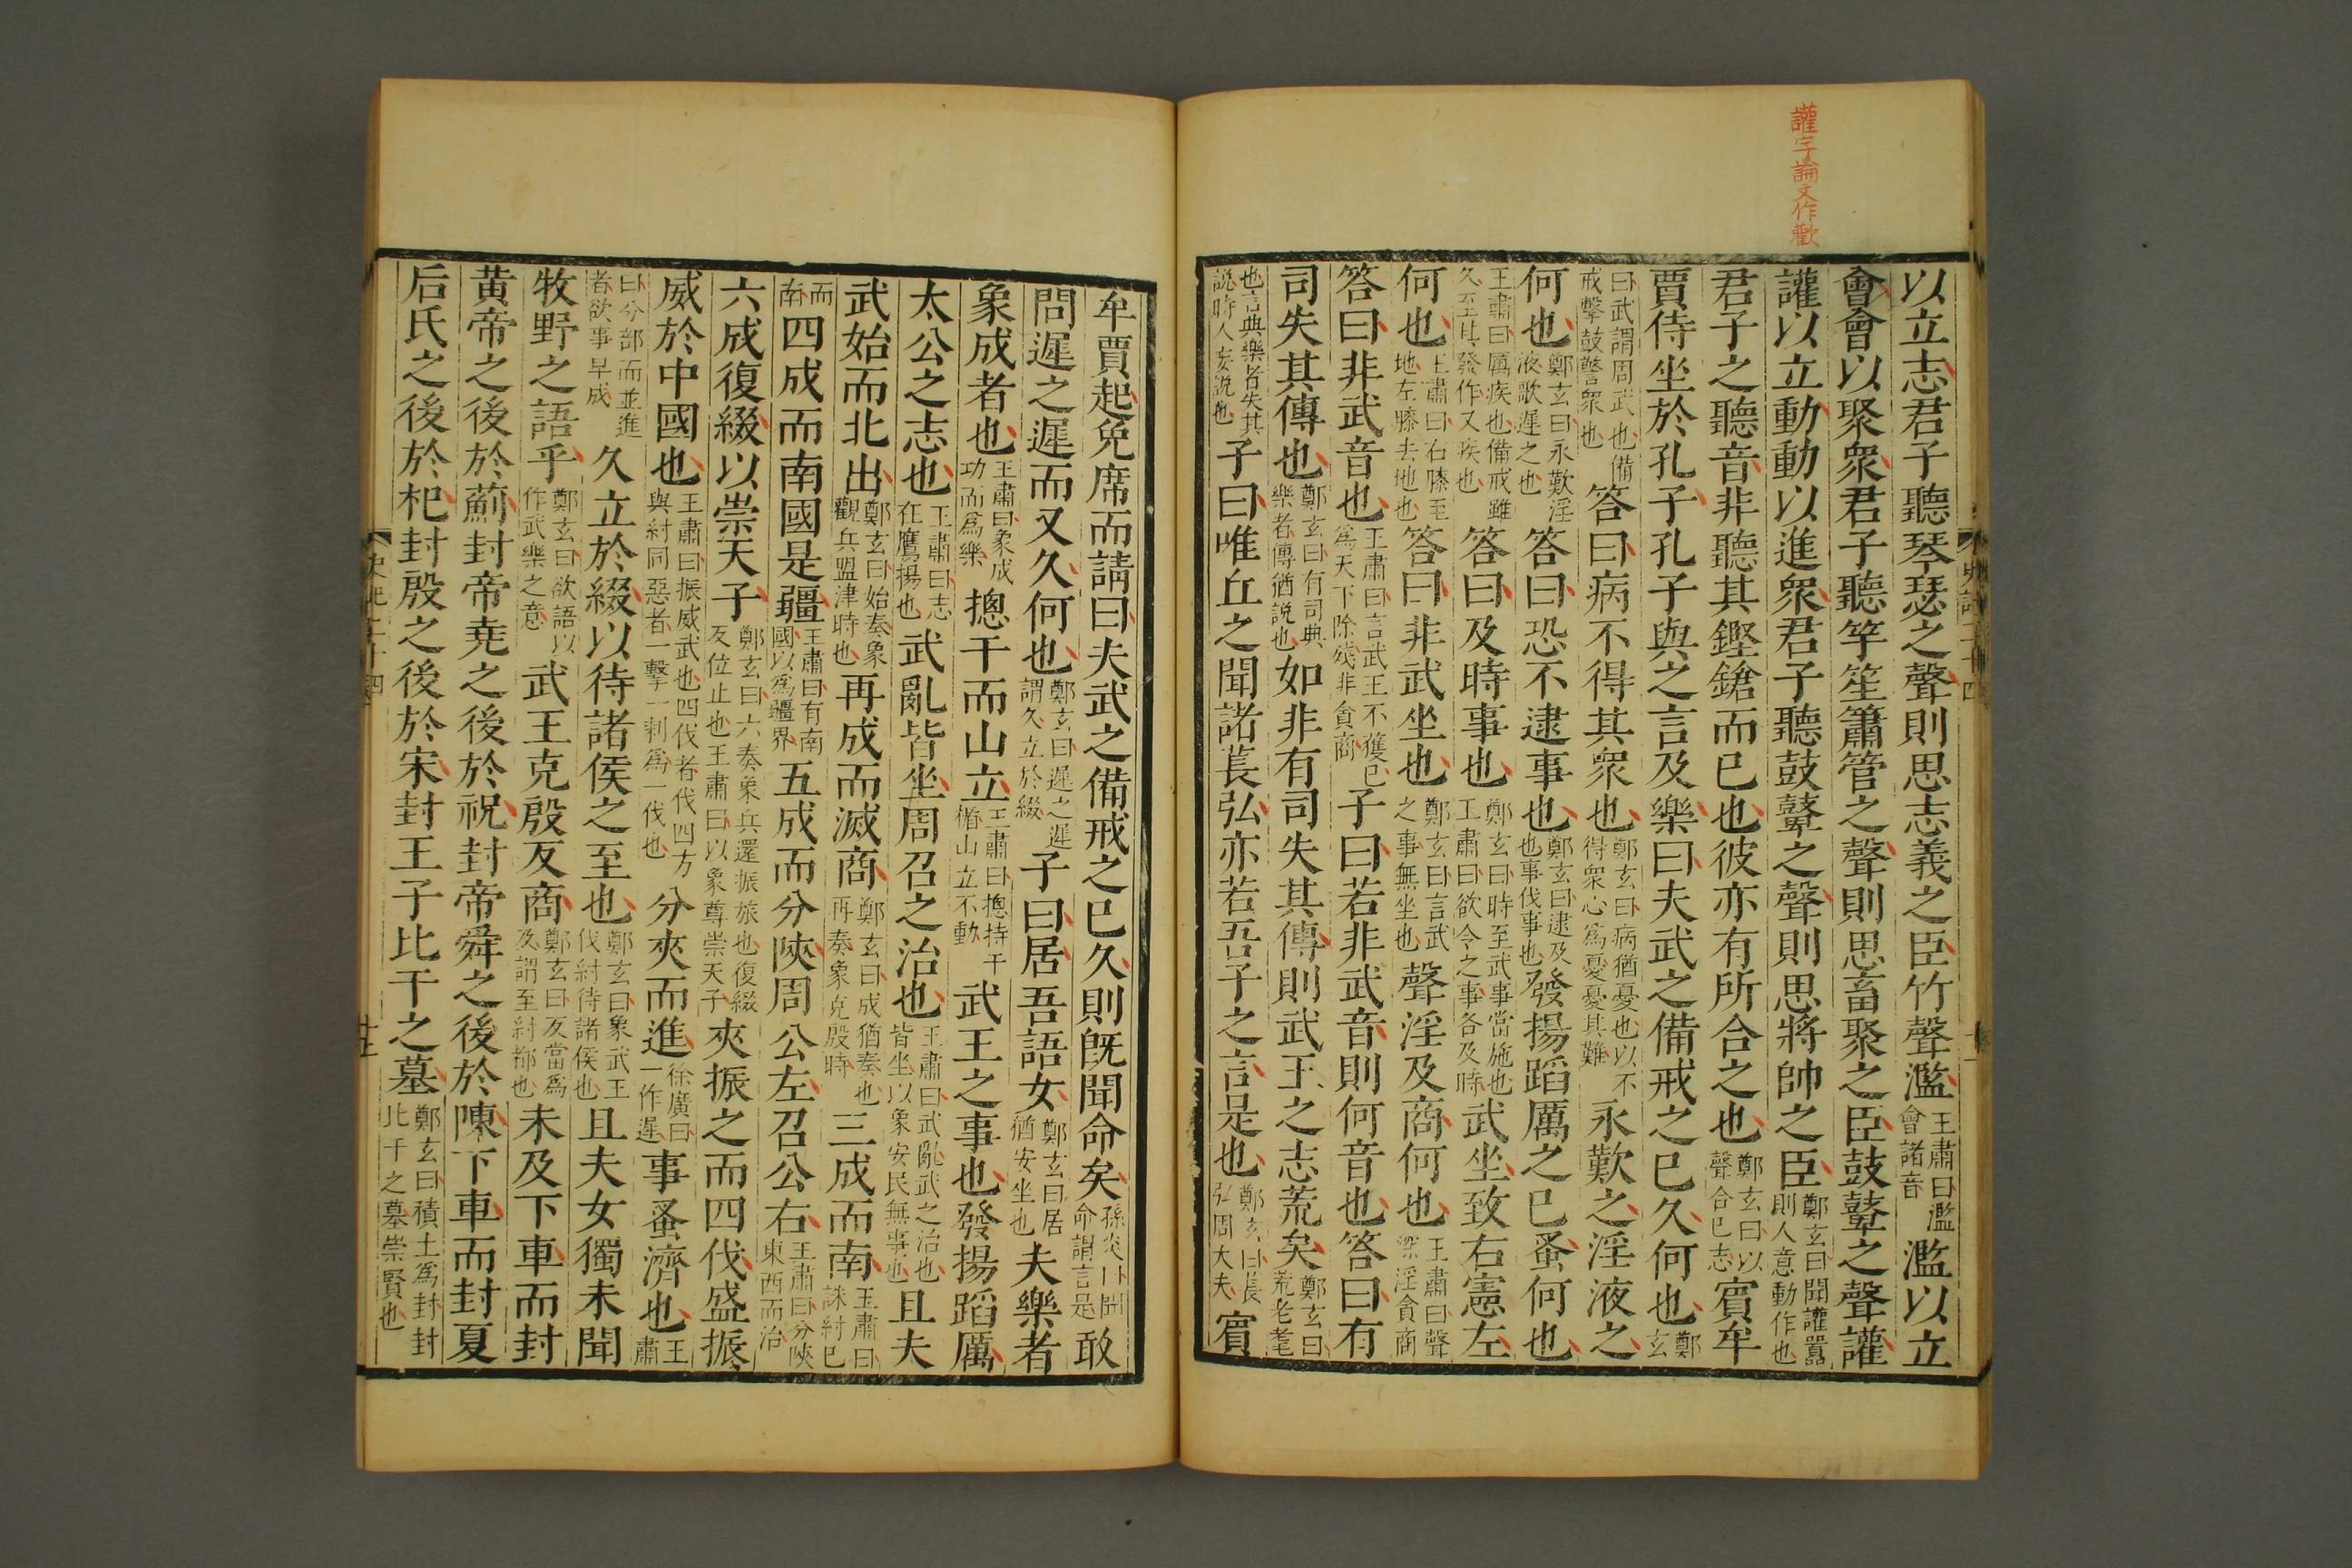 讙字論文作歡
以立志君子聽琴瑟之聲則思志義之臣竹聲濫王肅曰濫會諸音濫以立
會會以聚衆君子聽竽笙簫管之聲則思畜聚之臣鼓鼙之聲讙
讙以立動動以進衆君子聽鼓鼙之聲則思將帥之臣鄭玄曰聞讙嚻則人意動作也
君子之聽音非聽其鏗鎗而已也彼亦有所合之也鄭玄曰以聲合己志賓牟
賈侍坐於孔子孔子與之言及樂曰夫武之備戒之已久何也鄭玄
曰武謂周武也備戒擊鼓警衆也答曰病不得其衆也鄭玄曰病猶憂也以不得衆心爲憂憂其難永歎之淫液之
何也鄭玄曰永歎淫液歌遲之也答曰恐不逮事也鄭玄曰逮及也事伐事也發揚蹈厲之已蚤何也
王肅曰厲疾也備戒雖久至其發作又疾也答曰及時事也鄭玄曰時至武事當施也王肅曰欲令之事各及時武坐致右憲左
何也王肅曰右膝至地左膝去地也答曰非武坐也鄭玄曰言武之事無坐也聲淫及商何也王肅曰聲深淫貪商
答曰非武音也王肅曰言武王不獲已爲天下除殘非貪商子曰若非武音則何音也答曰有
司失其傳也鄭玄曰有司典樂者傳猶說也如非有司失其傳則武王之志荒矣鄭玄曰荒老耄
也言典樂者失其說時人妄說也子曰唯丘之聞諸萇弘亦若吾子之言是也鄭玄曰萇弘周大夫賓
牟賈起免席而請曰夫武之備戒之已久則既聞命矣孫炎曰聞命謂言是敢
問遲之遲而又久何也鄭玄曰遲之遲謂久立於綴子曰居吾語女鄭玄曰居猶安坐也夫樂者
象成者也王肅曰象成功而爲樂摠干而山立王肅曰摠持干楯山立不動武王之事也發揚蹈厲
太公之志也王肅曰志在鷹揚也武亂皆坐周召之治也王肅曰武亂武之治也皆坐以象安民無事也且夫
武始而北出鄭玄曰始奏象觀兵盟津時也再成而滅商鄭玄曰成猶奏也再奏象克殷時三成而南王肅曰誅紂已
而南四成而南國是疆王肅曰有南國以爲疆界五成而分陝周公左召公右王肅曰分陝東西而治
六成復綴以崇天子鄭玄曰六奏象兵還振旅也復綴反位止也王肅曰以象尊崇天子夾振之而四伐盛振
威於中國也王肅曰振威武也四伐者伐四方與紂同惡者一擊一刺爲一伐也分夾而進徐廣曰一作遲事蚤濟也王肅
曰今部而並進者欲事早成久立於綴以待諸侯之至也鄭玄曰象武王伐紂待諸侯也且夫女獨未聞
牧野之語乎鄭玄曰欲語以作武樂之意武王克殷反商鄭玄曰反當爲及謂至紂都也未及下車而封
黃帝之後於薊封帝堯之後於祝封帝舜之後於陳下車而封夏
后氏之後於杞封殷之後於宋封王子比干之墓鄭玄曰積土爲封封比干之墓崇賢也